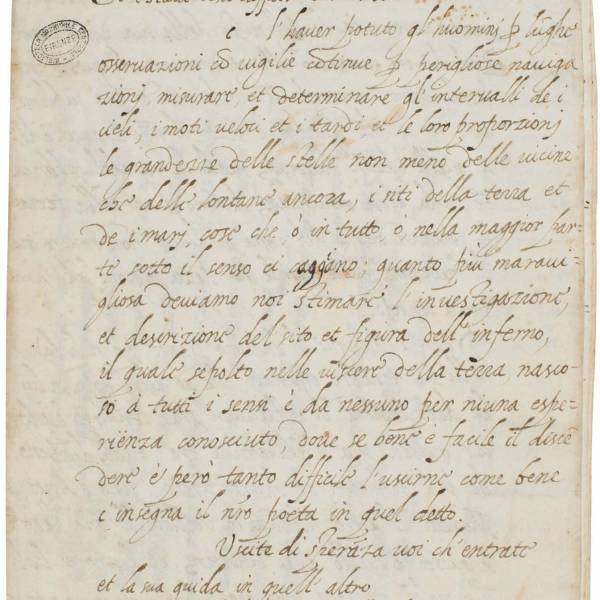 c l'haver potuto gl'huominj ꝑ lughe
osservazioni cõ vigilie cõtinue, ꝑ perigliose naviga
zionj misurare et determinare gl'intervalli de i
cieli, i moti veloci et i tardi et le loro proporzionj
le grandezze delle stelle non meno delle vicine
che delle lontane ancora, i siti della terra et
de i marj, cose che ò, in tutto, o, nella maggior par-
te sotto il senso ci caggiono; quanto più maravi-
gliosa deviamo noi stimare l'investigazione,
et descrizione del sito et figura dell'inferno,
il quale sepolto nelle viscere della terra nasco-
so à tutti i sensi è da nessuno per niuna espe-
rienza conosciuto, dove se bene è facile il disce-
dere è però tanto difficile l'uscirne come bene
c'insegna il nro poeta in quel detto.
Uscite di speranza voi ch'entrate
et la sua guida in quell'altro
FIRENZE